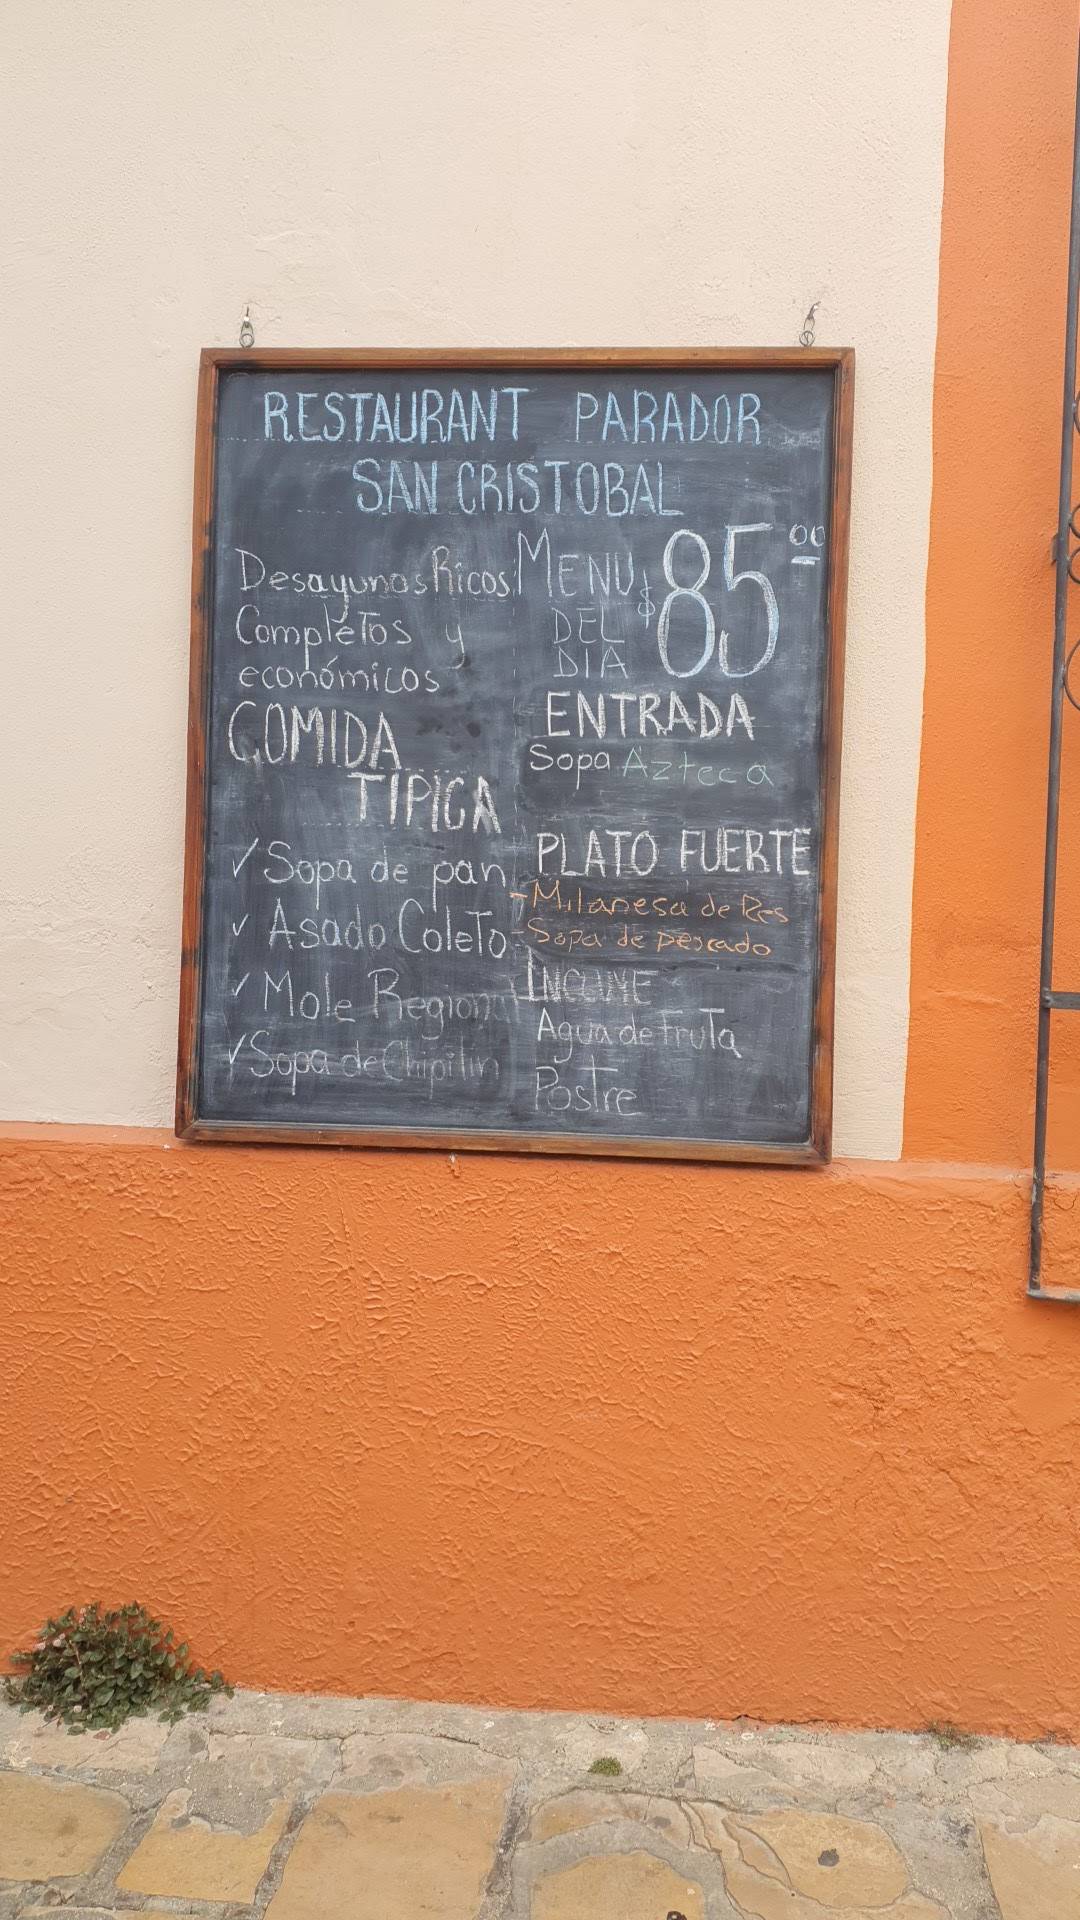 RESTAURANT PARADOR
SAN CRISTOBAL
Desayunos Ricos
Completos y
económicos
COMIDA
TIPICA
✓ Sopa de pan
✓ Asado Coleto
✓ Mole Regional
✓ Sopa de Chipilin
MENU $85.00
DEL
DIA
ENTRADA
Sopa Azteca
PLATO FUERTE
- Milanesa de Res
- Sopa de pescado
INCLUYE
Agua de fruta
Postre